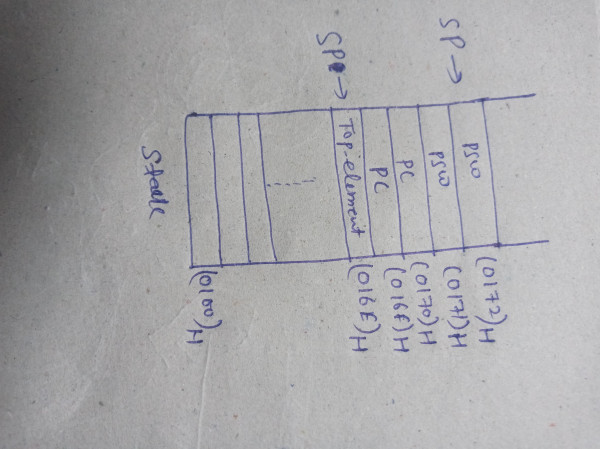 SP → PSW (0172)H
PSW (0171)H
PC (0170)H
PC (016F)H
SP → Top-element (016E)H
(0100)H
Stack